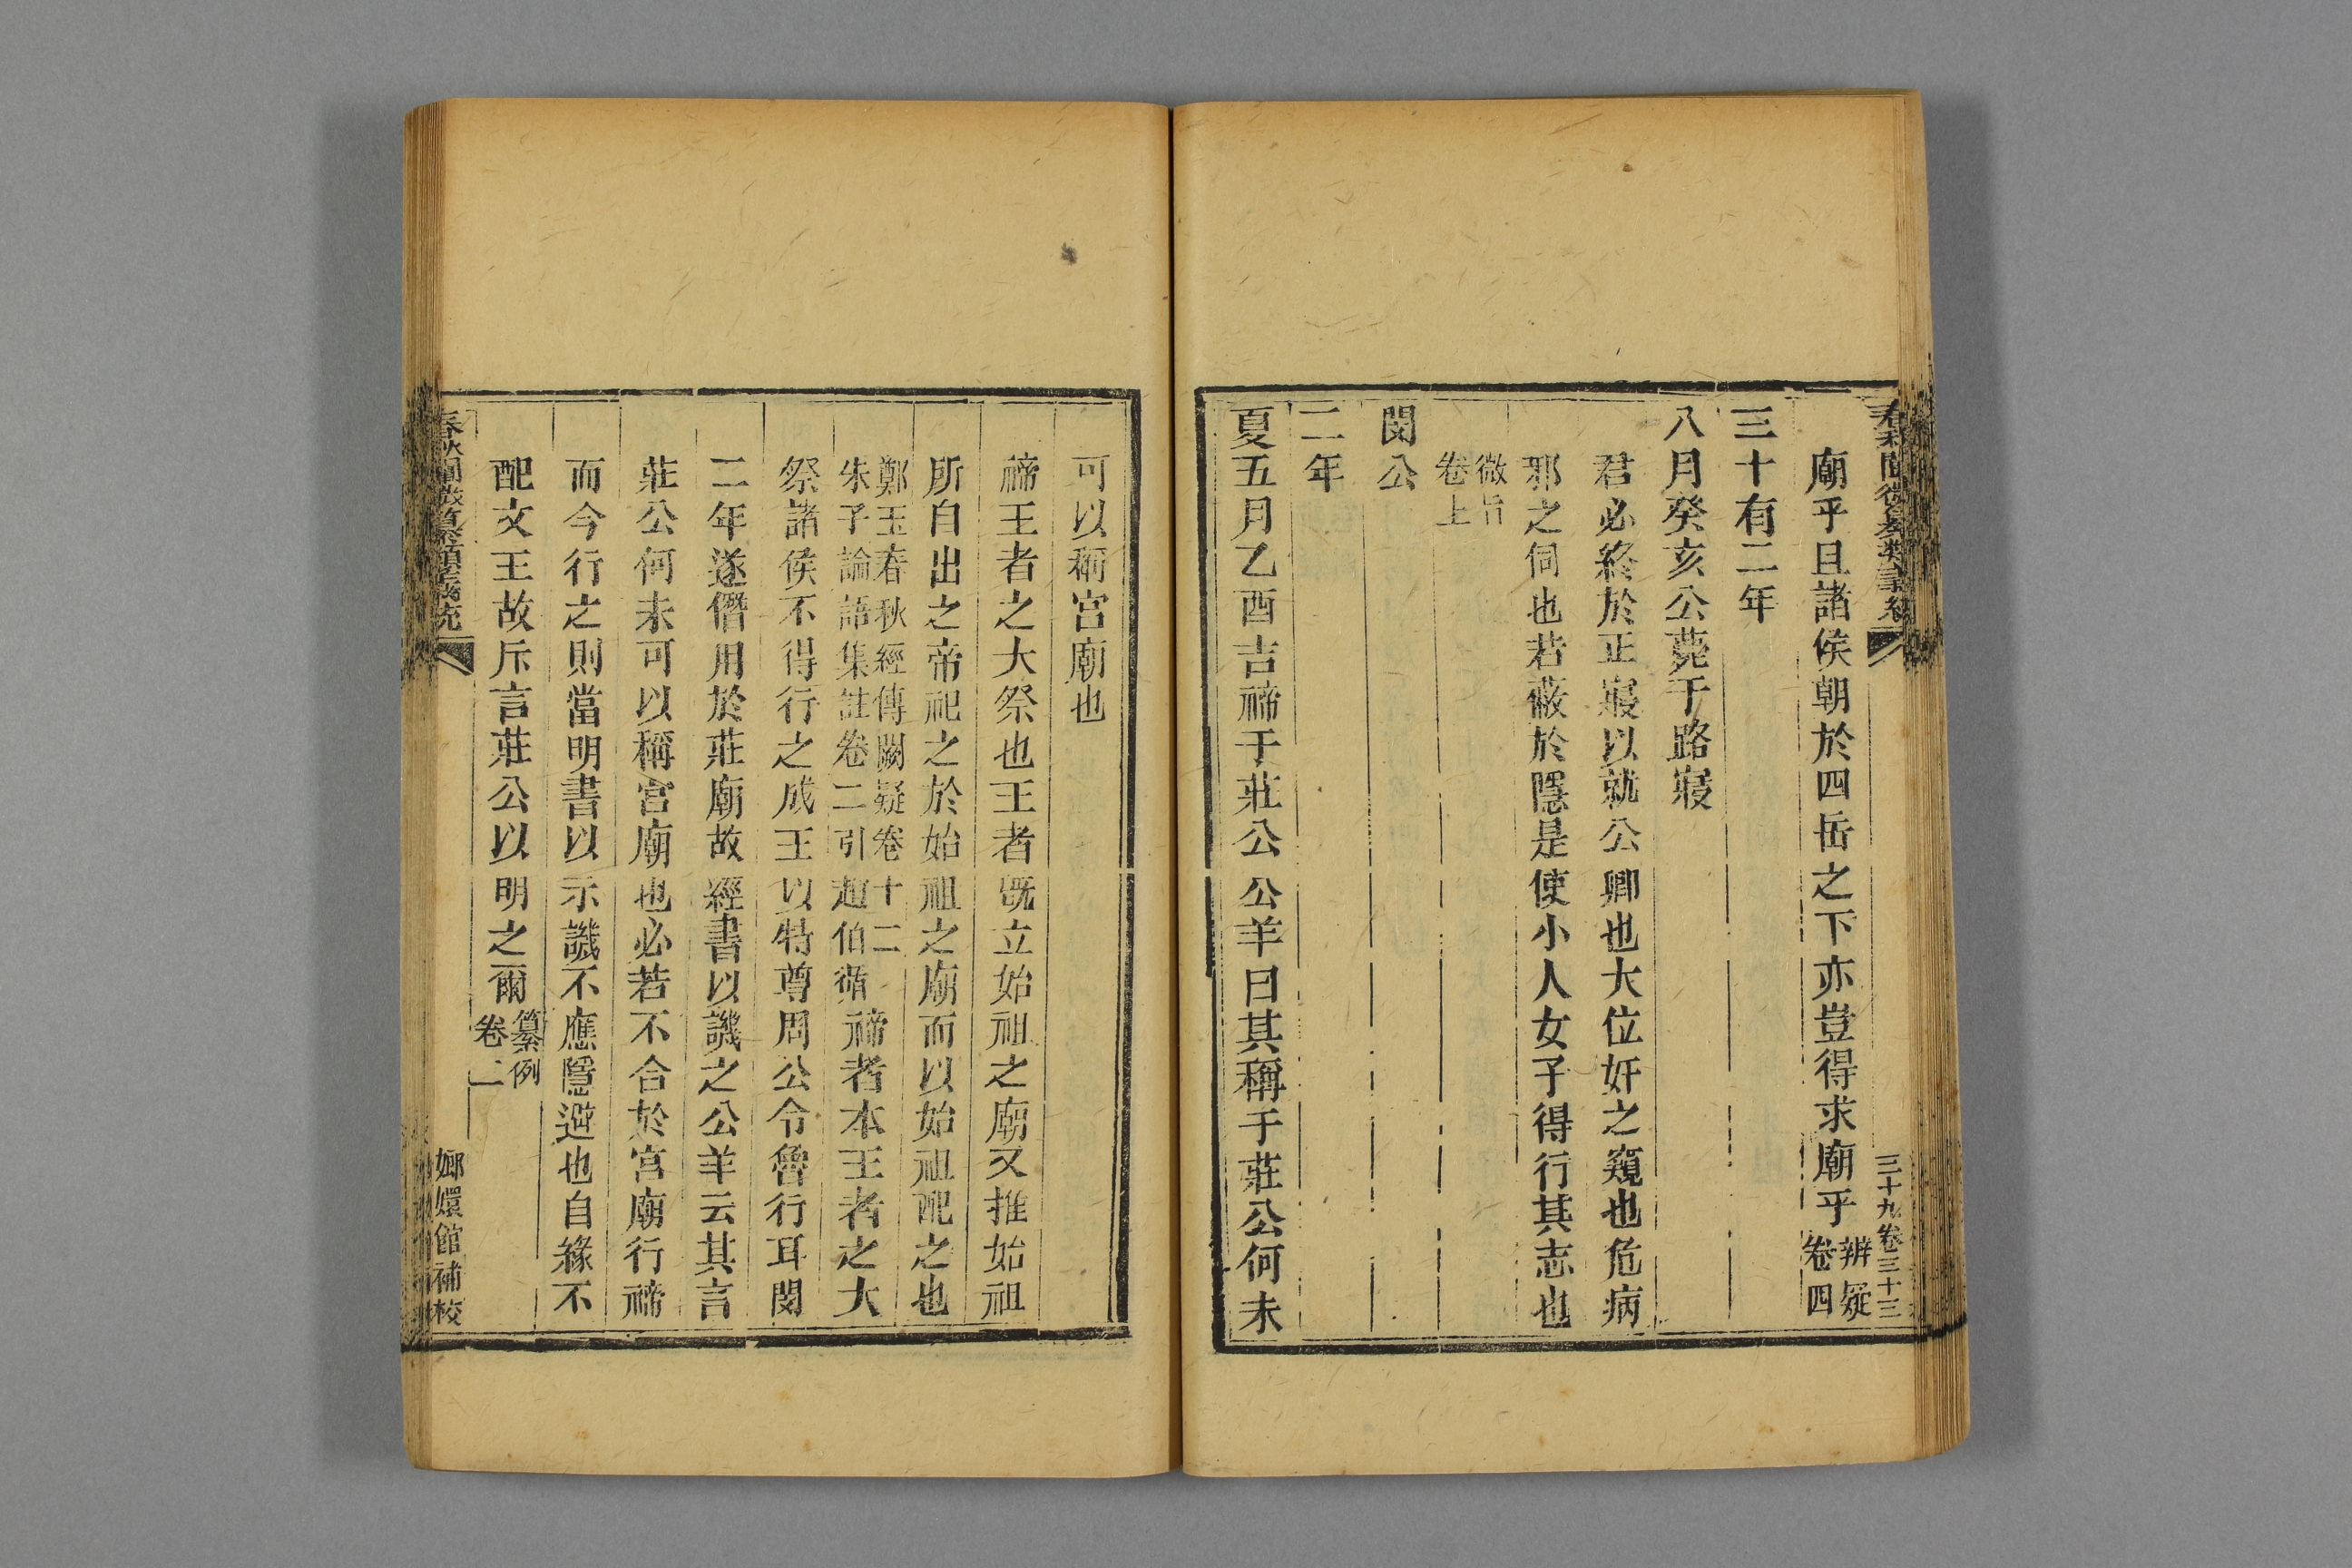 廟乎且諸侯朝於四岳之下亦豈得求廟乎辨疑卷四
三十有二年
八月癸亥公薨于路寢
君必終於正寢以就公卿也大位奸之窺也危病
邪之伺也若蔽於隱是使小人女子得行其志也
微旨卷上
閔公
二年
夏五月乙酉吉禘于莊公 公羊曰其稱于莊公何未
可以稱宮廟也
禘王者之大祭也王者既立始祖之廟又推始祖
所自出之帝祀之於始祖之廟而以始祖配之也
鄭玉春秋經傳闕疑卷十二朱子論語集註卷二引趙伯循禘者本王者之大
祭諸侯不得行之成王以特尊周公令魯行耳閔
二年遂僭用於莊廟故經書以譏之公羊云其言
莊公何未可以稱宮廟也必若不合於宮廟行禘
而今行之則當明書以示譏不應隱避也自緣不
配文王故斥言莊公以明之爾纂例卷二
三十九卷三十三
嫏嬛館補校